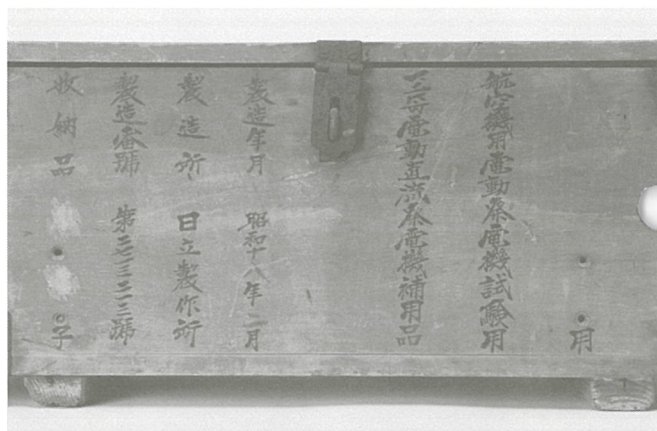 用
航空機用電動発電機試験用
一二号電動直流発電機補用品
製造年月 昭和十八年二月
製造所 日立製作所
製造番號 第二七三二三號
收納品